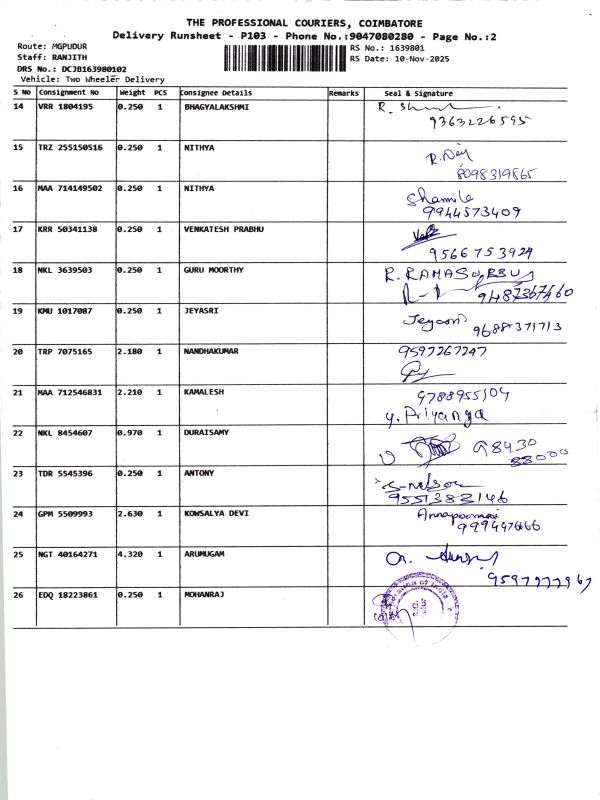 THE PROFESSIONAL COURIERS, COIMBATORE
Delivery Runsheet - P103 - Phone No.:9047080280 - Page No.:2
Route: MGPUDUR
RS No.: 1639801
Staff: RANJITH
RS Date: 10-Nov-2025
DRS No.: DCJB163980102
Vehicle: Two Wheeler Delivery
S No Consignment No Weight PCS Consignee Details Remarks Seal & Signature
14 VRR 1804195 0.250 1 BHAGYALAKSHMI
9363226595
15 TRZ 255150516 0.250 1 NITHYA
8098319865
16 MAA 714149502 0.250 1 NITHYA Shamile
9944573409
17 KRR 50341138 0.250 1 VENKATESH PRABHU
9566753924
18 NKL 3639503 0.250 1 GURU MOORTHY
19 KMU 1017087 0.250 1 JEYASRI
9688371713
20 TRP 7075165 2.180 1 NANDHAKUMAR 9597267247
21 MAA 712546831 2.210 1 KAMALESH 9788955104
y. Priyanga
22 NKL 8454607 0.970 1 DURAISAMY 98430
23 TDR 5545396 0.250 1 ANTONY
9551383146
24 GPM 5509993 2.630 1 KOWSALYA DEVI
25 NGT 40164271 4.320 1 ARUMUGAM
26 EDQ 18223861 0.250 1 MOHANRAJ